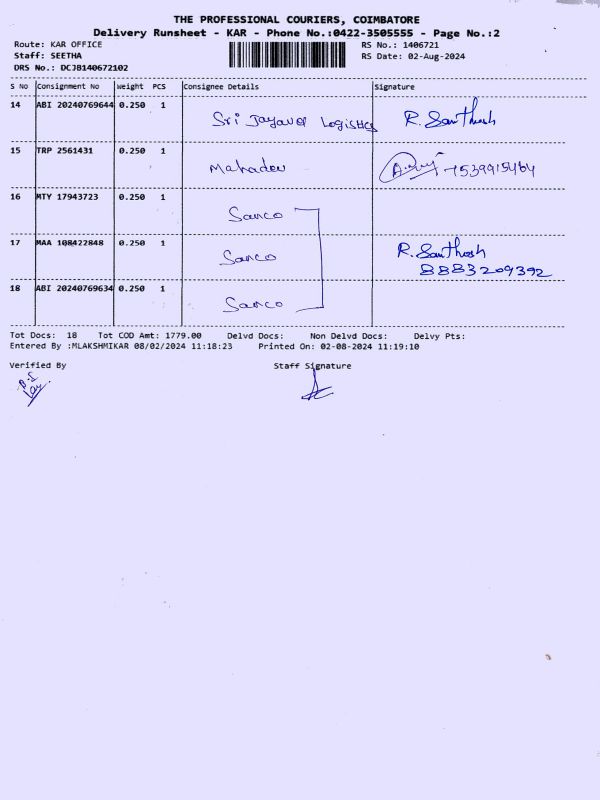 THE PROFESSIONAL COURIERS, COIMBATORE
Delivery Runsheet - KAR - Phone No.:0422-3505555 - Page No.:2
Route: KAR OFFICE RS No.: 1406721
Staff: SEETHA RS Date: 02-Aug-2024
DRS No.: DCJB140672102
S No Consignment No Weight PCS Consignee Details Signature
14 ABI 20240769644 0.250 1 Sri Jayavel Logistics R. Santhosh
15 TRP 2561431 0.250 1 Mahadev 7539915464
16 MTY 17943723 0.250 1 Sanco
17 MAA 108422848 0.250 1 Sanco R. Santhosh
8883209392
18 ABI 20240769634 0.250 1 Sanco
Tot Docs: 18 Tot COD Amt: 1779.00 Delvd Docs: Non Delvd Docs: Delvy Pts:
Entered By :MLAKSHMIKAR 08/02/2024 11:18:23 Printed On: 02-08-2024 11:19:10
Verified By Staff Signature